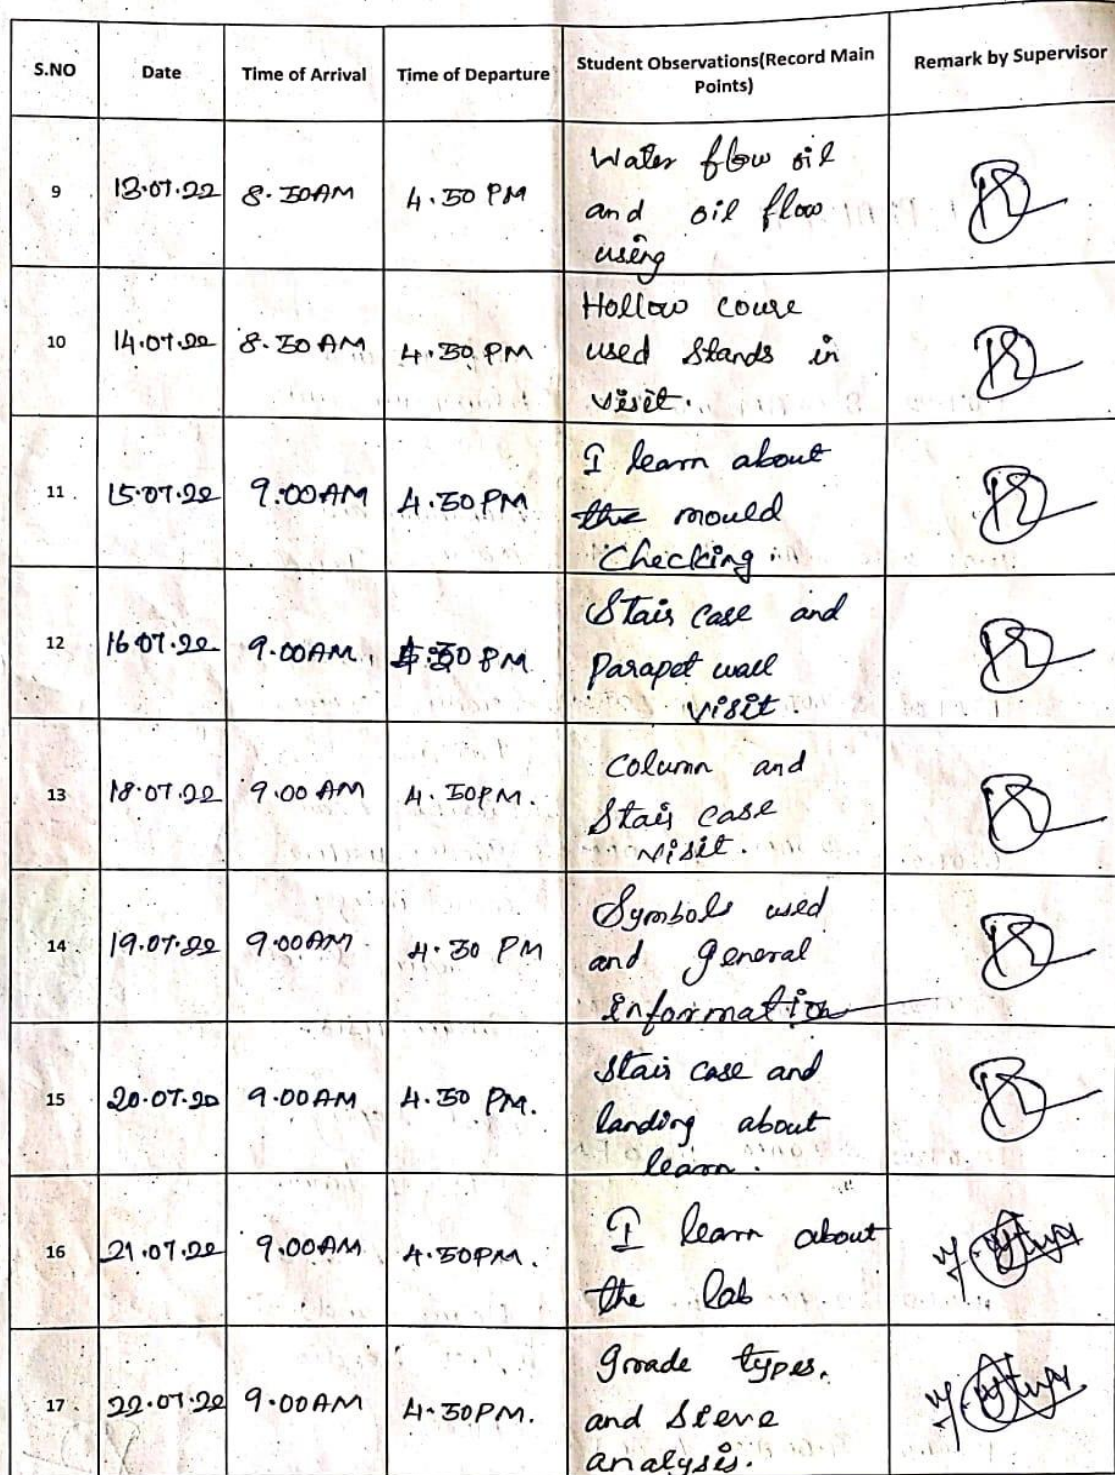 S.NO Date Time of Arrival Time of Departure Student Observations(Record Main Points) Remark by Supervisor
9 13.07.22 8.30AM 4.30 PM Water flow oil
and oil flow
using
10 14.07.22 8.30 AM 4.30 PM Hollow course
used stands in
visit.
11 15.07.22 9:00AM 4.30PM I learn about
the mould
checking
12 16.07.22 9.00AM 4:30 PM Stair case and
Parapet wall
visit.
13 18.07.22 9.00 AM 4.30PM. Column and
Stair case
visit.
14 19.07.22 9.00AM 4.30 PM Symbols used
and general
information
15 20.07.20 9.00AM 4.30 PM. Stair case and
landing about
learn.
16 21.07.22 9.00AM 4.30PM. I learn about
the lab
17 22.07.22 9.00AM 4.30PM. grade types.
and Sieve
analysis.